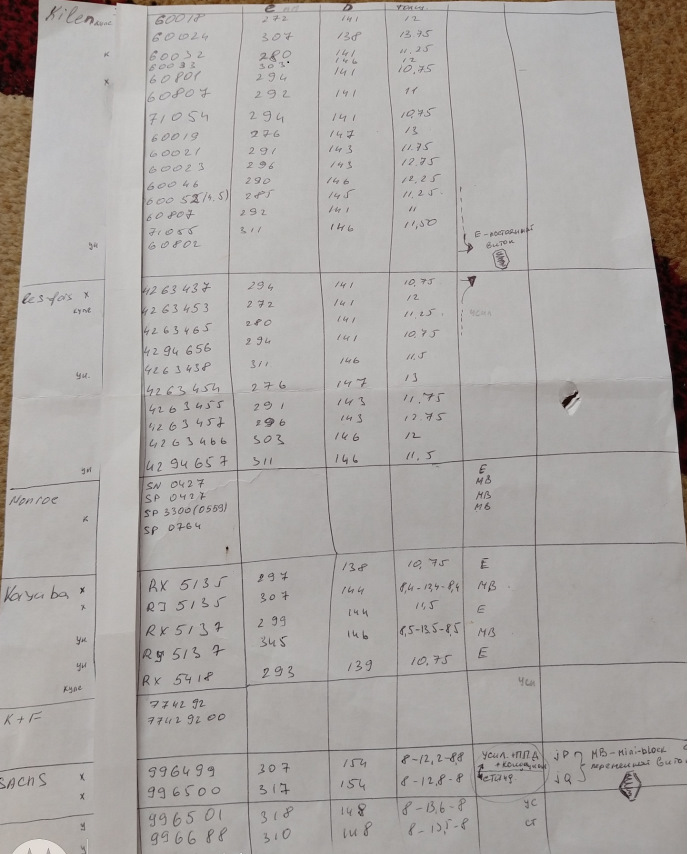 Kilen купе 60018 272 141 12
60024 307 138 13.75
к 60032 280 141 11,25
60033 303 146 12
х 60801 294 141 10,75
60807 292 141 11
71054 294 141 10,75
60019 276 147 13
60021 291 143 11.75
60023 296 143 12.75
60046 290 146 12,25
60052(4.5) 285 145 11,25
60807 292 141 11
71055 311 146 11,50 Е-постоянный
ун 60802 виток
Lesjofors х 4263437 294 141 10,75
купе 4263453 272 141 12
4263465 280 141 11,25 усил
4294656 294 141 10.75
ун. 4263438 311 146 11.5
4263454 276 147 13
4263455 291 143 11.75
4263457 296 143 12.75
4263466 303 146 12
ун 4294657 311 146 11.5
SN 0427 Е
Monroe SP 0427 МВ
SP 3300(0559) МВ
к SP 0764 МВ
Kayaba х RX 5135 297 138 10,75 Е
х RJ 5135 307 144 8,4-13,4-8,4 МВ
RX 5137 299 144 11,5 Е
ун RJ 5137 345 146 8,5-13.5-8,5 МВ
ун RX 5418 293 139 10.75 Е
купе
K+F 774292 усл
77429200
SACHS х 996499 307 154 8-12,2-8,8 усил. + ППД jD МВ-Mini-block
х 996500 317 154 8-12,8-8 станд jQ переменный виток
у 996501 318 148 8-13,6-8 ус
у 996688 310 148 8-13,5-8 ст